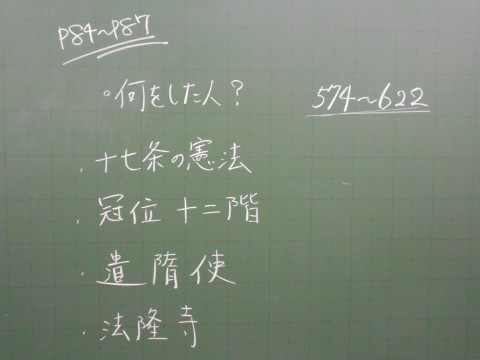 P84~P87
。何をした人?
574~622
・十七条の憲法
・冠位十二階
・遣隋使
・法隆寺